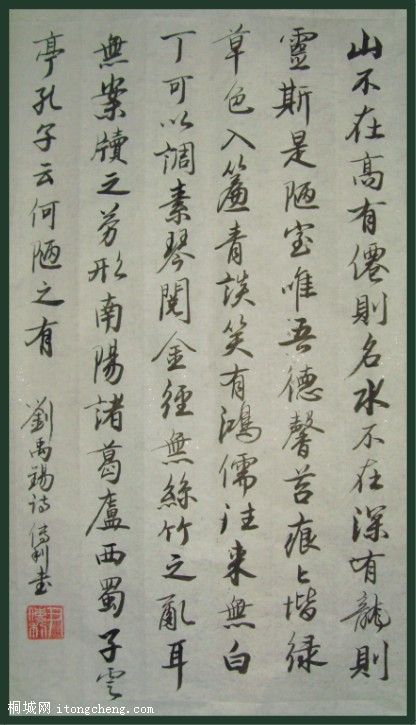 山不在高有僊則名水不在深有龍則
靈斯是陋室唯吾德馨苔痕上堦緑
草色入簾青談笑有鴻儒往来無白
丁可以調素琴閱金經無絲竹之亂耳
無案牘之劳形南陽諸葛廬西蜀子雲
亭孔子云何陋之有
劉禹錫詩 书
桐城网 itongcheng.com